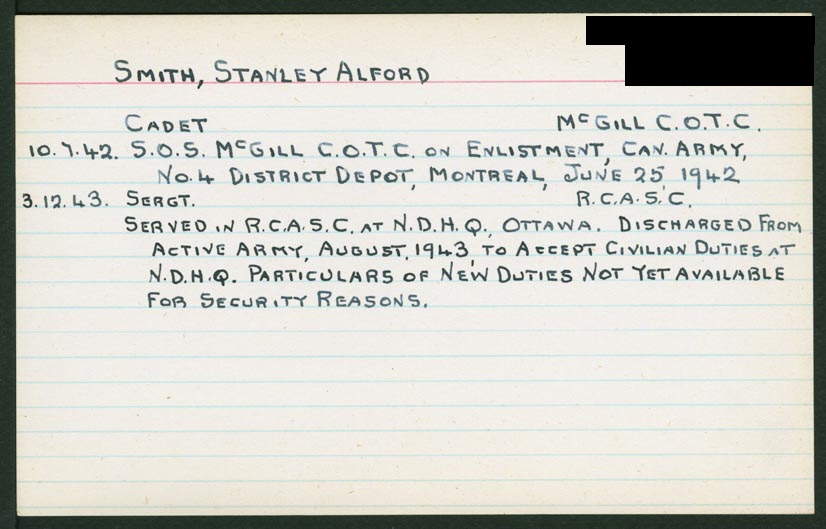 SMITH, STANLEY ALFORD
CADET McGILL C.O.T.C.
10.7.42. S.O.S. McGILL C.O.T.C. ON ENLISTMENT, CAN. ARMY,
No. 4 DISTRICT DEPOT, MONTREAL, JUNE 25, 1942
3.12.43. SERGT. R.C.A.S.C.
SERVED IN R.C.A.S.C. AT N.D.H.Q., OTTAWA. DISCHARGED FROM
ACTIVE ARMY, AUGUST, 1943, TO ACCEPT CIVILIAN DUTIES AT
N.D.H.Q. PARTICULARS OF NEW DUTIES NOT YET AVAILABLE
FOR SECURITY REASONS.